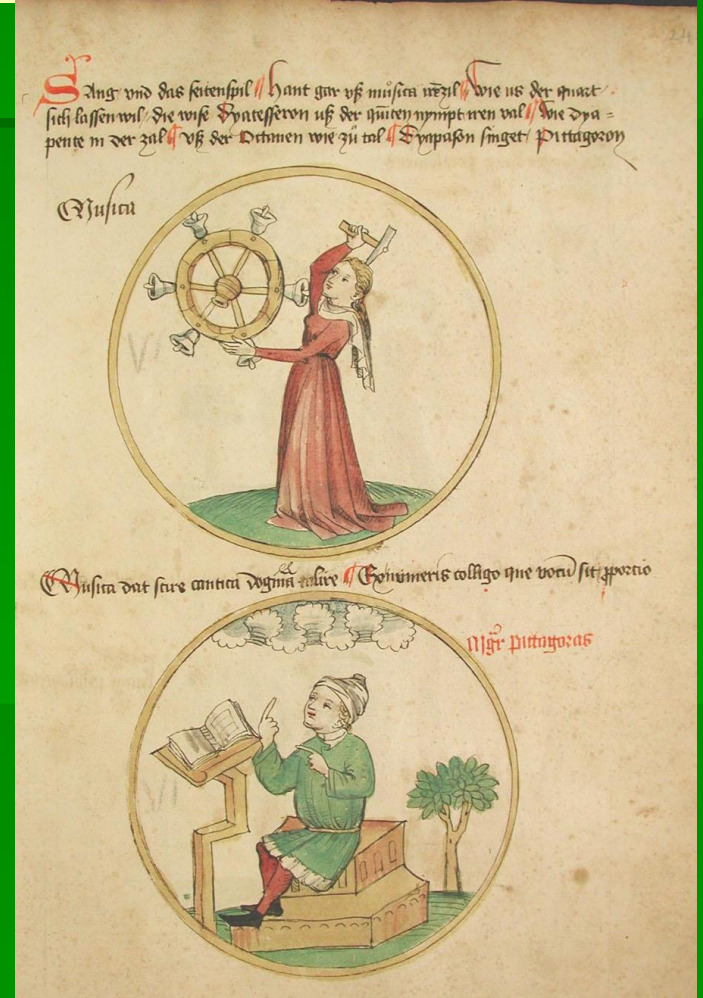 Sang vnd das seitenspil Hant gar vß musica zil Wie us der quart
sich lassen wil die wise Dyatesseron uß der quinten nympt iren val Wie dya=
pente in der zal vß der Octauen wie zů tal Dyapason singet Pittagoron
Musica
Musica dat scire cantica dogma Ex numeris colligo que vocū sit proporcio
Mgr pittagoras